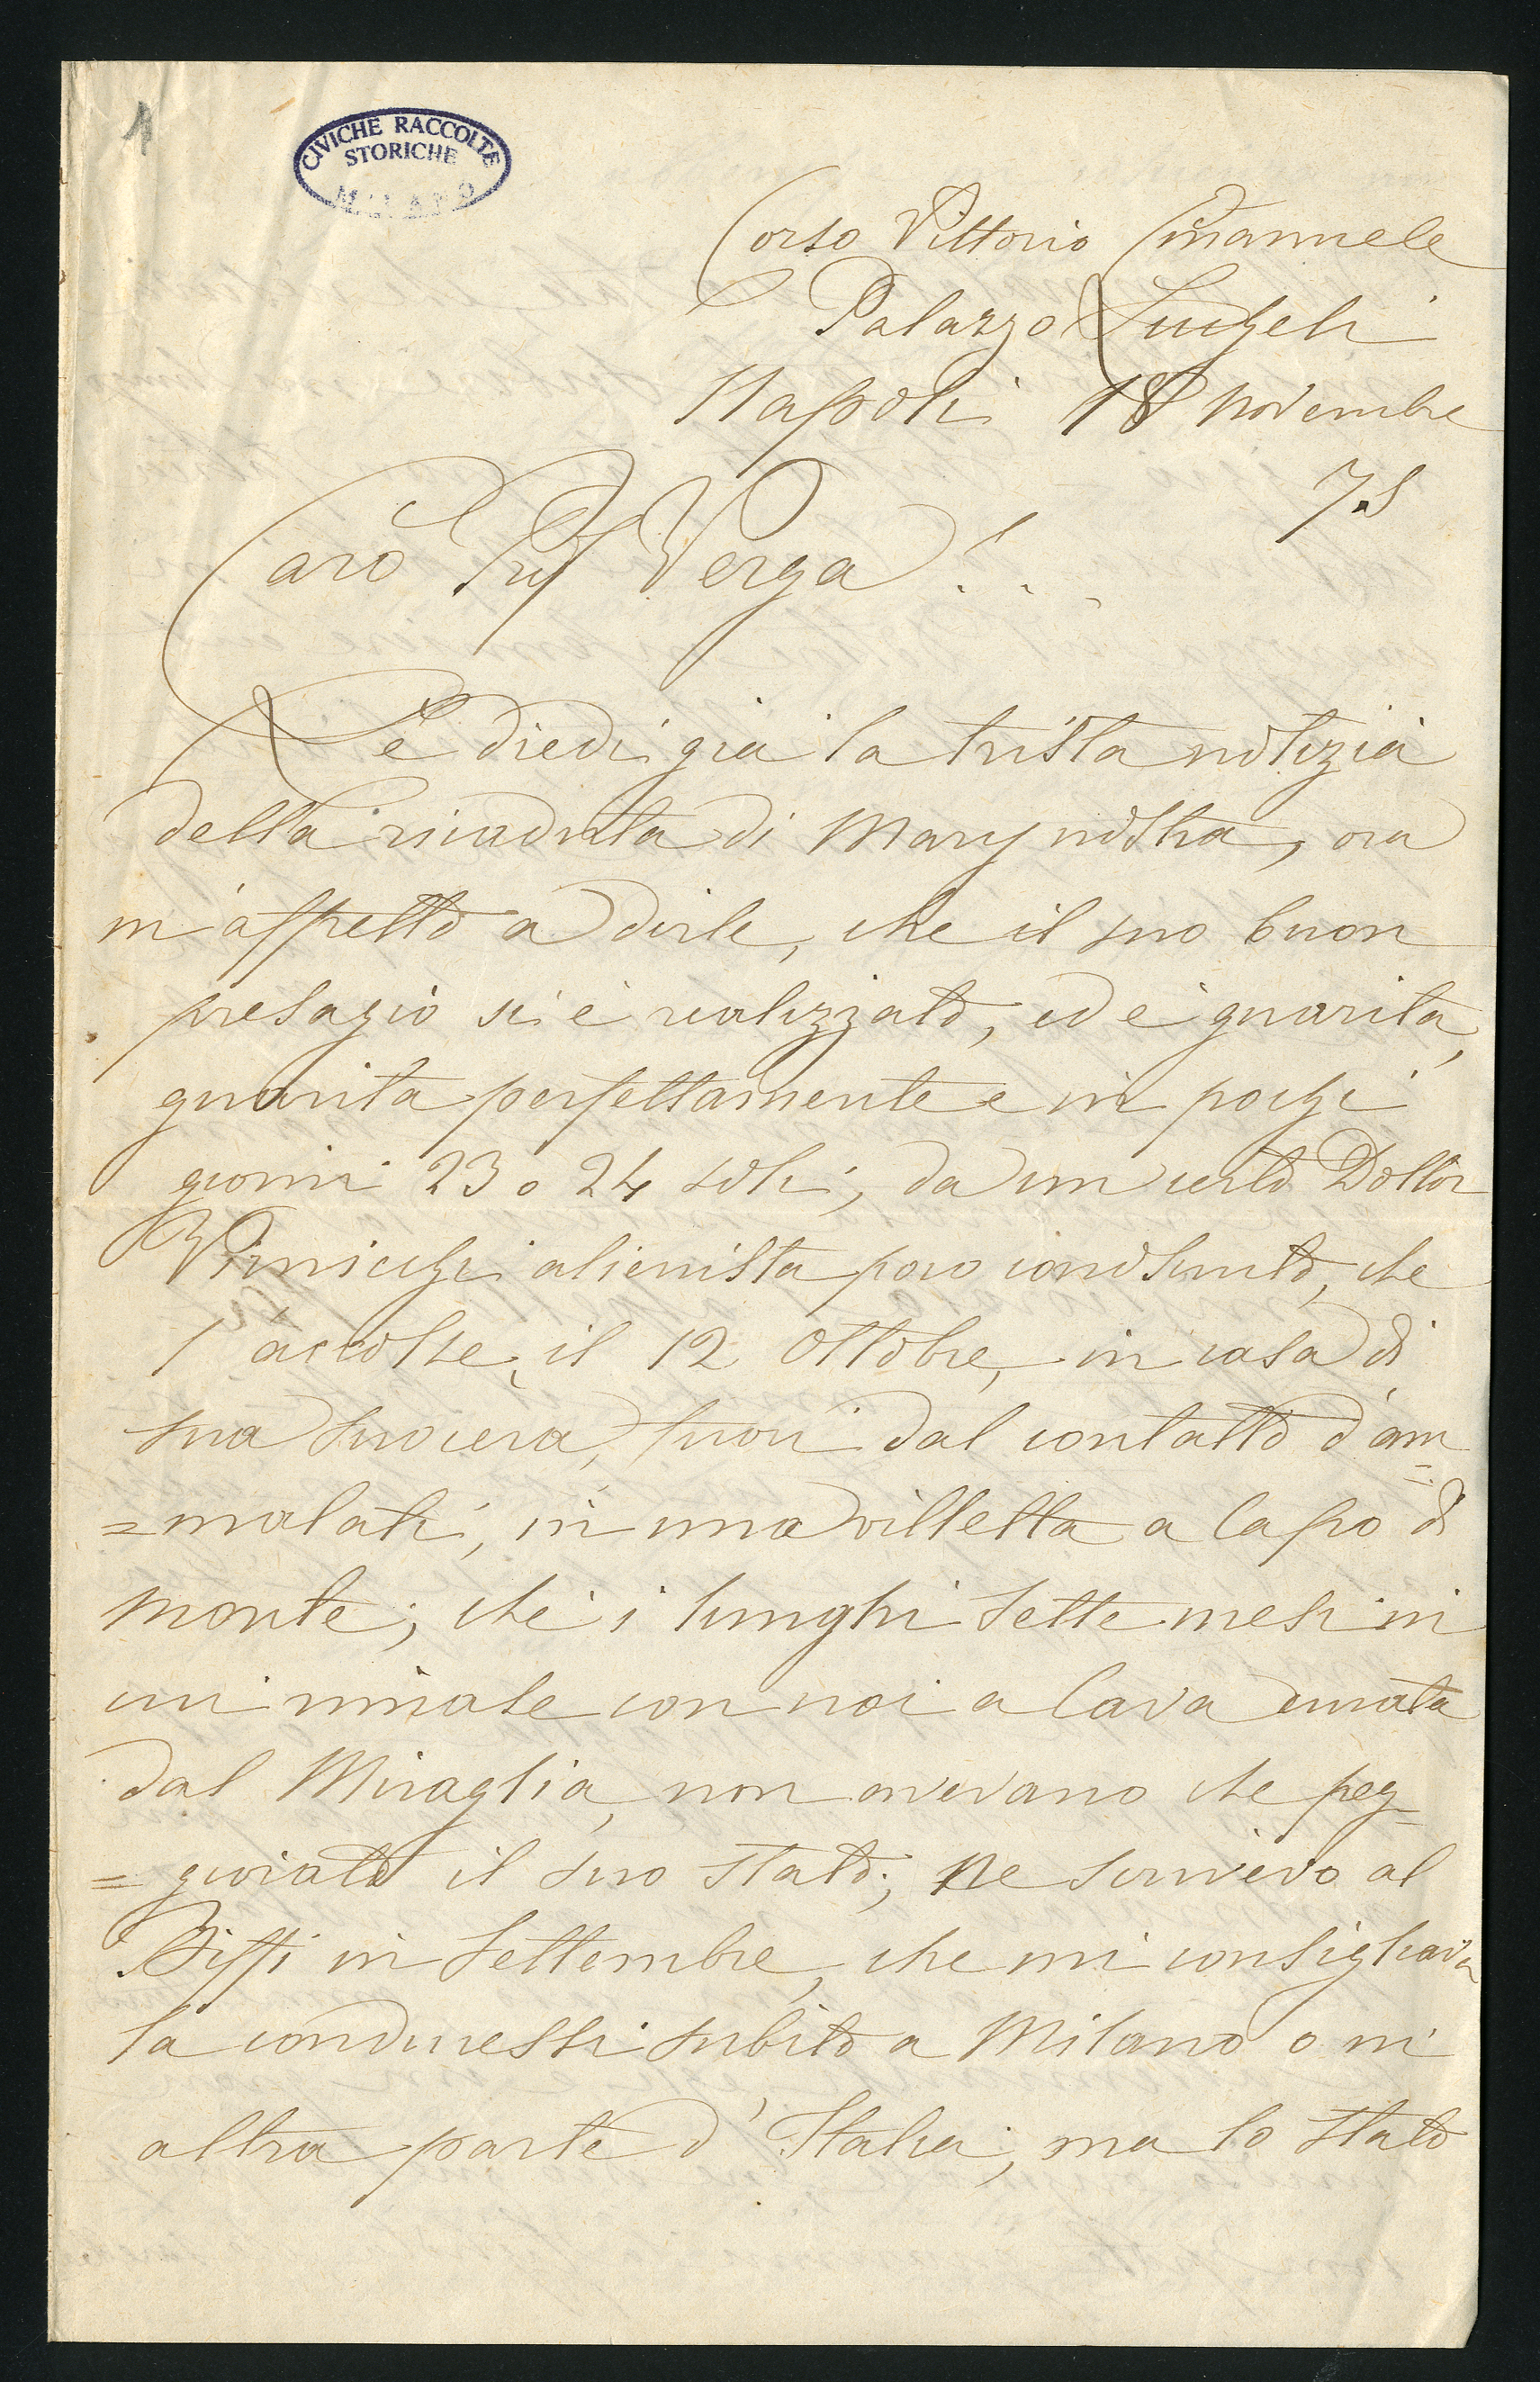 1
CIVICHE RACCOLTE
STORICHE
MILANO
Corso Vittorio Emanuele
Palazzo
Napoli 18 Novembre
75
Caro Prof Verga!..
Le diedi già la trista notizia
della ricaduta di Mary nostra, ora
m'affretto a dirle, che il suo buon
presagio si è realizzato, ed è guarita,
guarita perfettamente e in pochi
giorni 23 o 24 soli, da un certo Dottor
alienista poco conosciuto, che
l'accolse, il 12 Ottobre, in casa di
sua suocera, fuori dal contatto d'am=
=malati, in una villetta a Capo di
monte; chè i lunghi sette mesi in
cui rimase con noi a Cava curata
dal Miraglia, non avevano che peg=
=giorato il suo stato; ne scrivevo al
Biffi in Settembre, che mi consigliava
la conducessi subito a Milano o in
altra parte d'Italia; ma lo stato